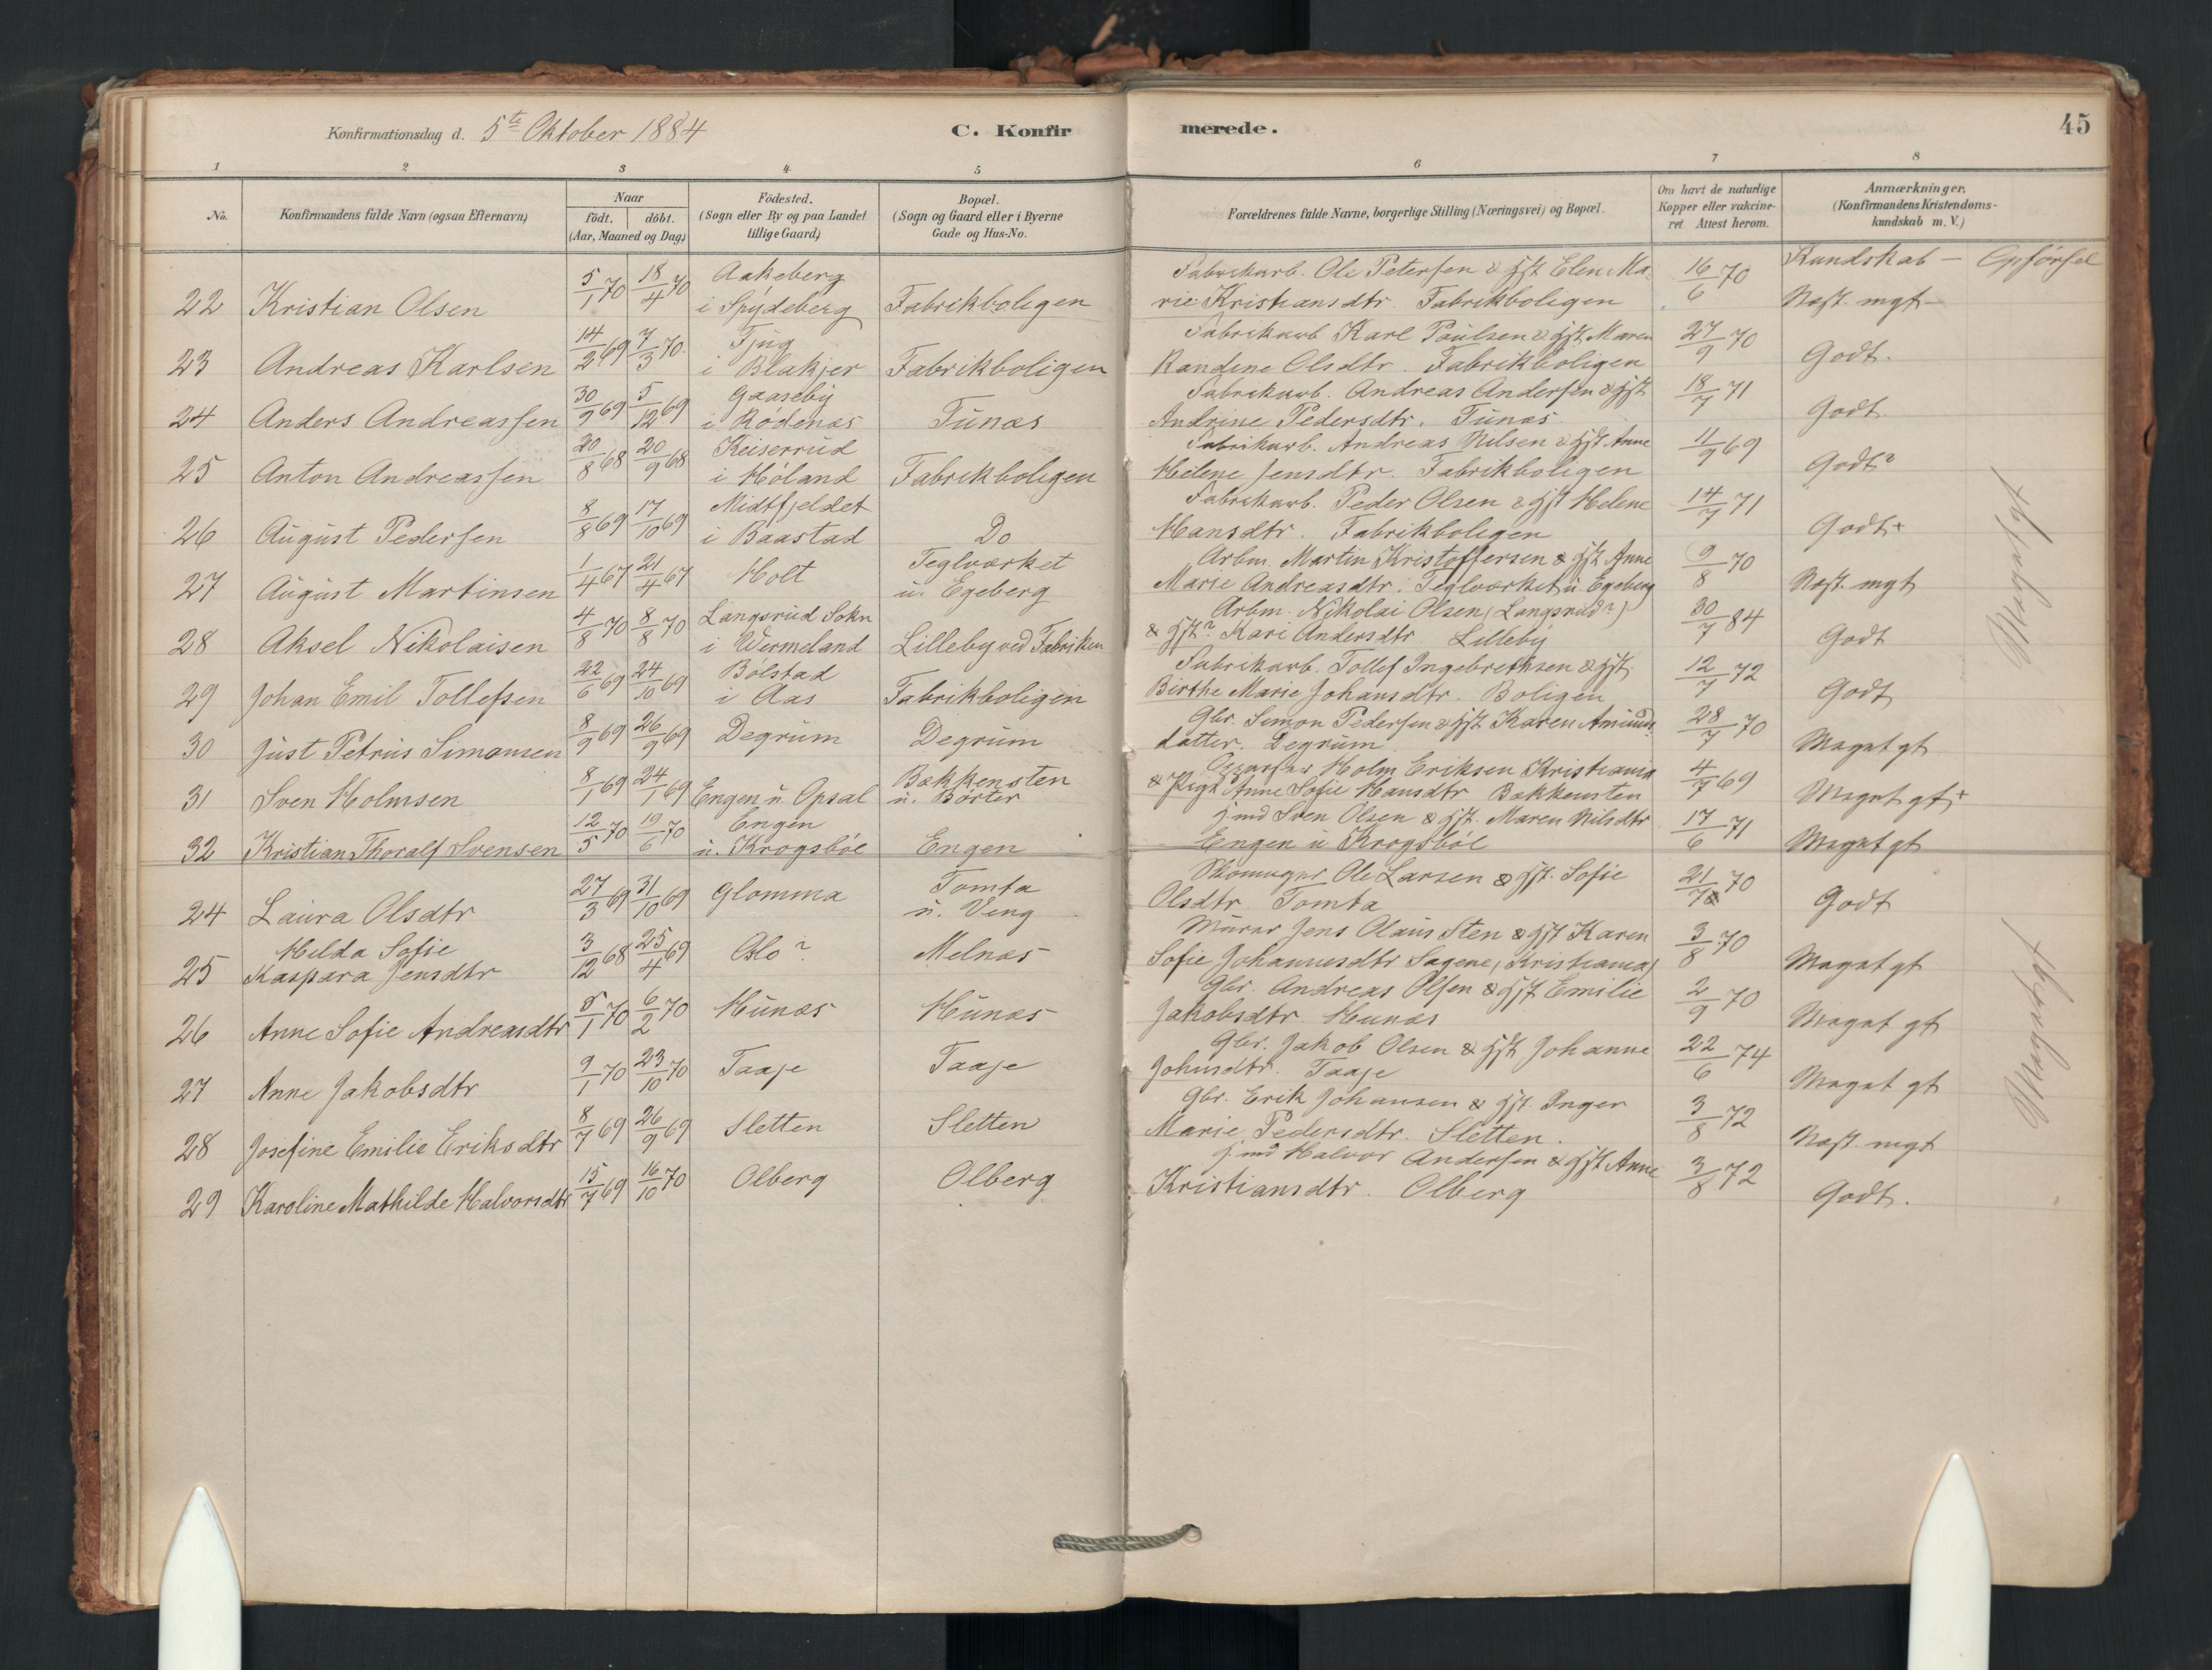 Konfirmationsdag d. 5te Oktober 1884
C. Konfirmerede.
45
1 2 3 4 5 6 7 8
No.
Konfirmandens fulde Navn (ogsaa Efternavn)
Naar
födt. döbt.
(Aar, Maaned og Dag)
Födested.
(Sogn eller By og paa Landet
tillige Gaard)
Bopæl.
(Sogn og Gaard eller i Byerne
Gade og Hus-No.
Forældrenes fulde Navne, borgerlige Stilling (Næringsvei) og Bopæl.
Om havt de naturlige
Kopper eller vakcine-
ret. Attest herom.
Anmærkninger.
(Konfirmandens Kristendoms-
kundskab m. V.)
Kundskab — Opførsel
22 Kristian Olsen 5/1 70 18/4 70 Aakeberg i Spydeberg Fabrikboligen
Fabrikarb. Ole Petersen & Hst. Elen Ma-
rie Kristiansdtr. Fabrikboligen 16/6 70 Mgt.
23 Andreas Karlsen 14/2 69 7/3 70 i Blakjer Fabrikboligen
Fabrikarb Karl Paulsen & Hst. Maren
Randine Olsdtr. Fabrikboligen 27/9 70 Godt.
24 Anders Andreassen 30/9 69 5/12 69 Gaaseby i Rödenæs Tunæs
Fabrikarb. Andreas Andersen & Hst
Andrine Pedersdtr. Tunæs 18/7 71 Godt
25 Anton Andreassen 20/8 68 20/9 68 Keiserrud i Höland Fabrikboligen
Fabrikarb. Andreas Nilsen & Hst. Anne
Helene Jensdtr. Fabrikboligen 11/9 69 Godt?
26 August Pedersen 8/8 69 17/10 69 Midtfjeldet i Baastad Do
Fabrikarb. Peder Olsen & Hst Helene
Hansdtr. Fabrikboligen 14/7 71 Godt+
27 August Martinsen 1/4 67 21/4 67 Holt Teglværket u. Egeberg
Arbm. Martin Kristoffersen & Hst. Anne
Marie Andreasdtr. Teglværket u Egeberg 9/8 70 Næst. mgt
28 Aksel Nikolaisen 4/8 70 8/8 70 Langsrud Sokn i Wermeland Lilleby ved Fabriken
Arbm. Nikolai Olsen (Langsrud?)
& Hst? Kari Andersdtr. Lilleby 30/7 84 Godt
29 Johan Emil Tollefsen 22/6 69 24/10 69 Bölstad i Aas Fabrikboligen
Fabrikarb. Tollef Ingebrethsen & Hst.
Birthe Marie Johansdtr. Boligen 12/7 72 Godt
30 Just Petrus Simonsen 8/9 69 26/9 69 Degrum Degrum
Gbr. Simon Pedersen & Hst Karen Amunds
datter. Degrum 28/7 70 Megetgt
31 Sven Holmsen 8/1 69 24/1 69 Engen u. Opsal Bakkensten u. Börter
Holm Eriksen Kristiania
& Pige Anne Sofie Hansdtr Bakkensten 4/7 69 Meget gt+
32 Kristian Thoralf Svensen 12/5 70 19/6 70 Engen u. Krogsböl Engen
Jmd Sven Olsen & Hst. Maren Nilsdtr
Engen u Krogsböl 17/6 71 Meget gt
Megetgt
24 Laura Olsdtr 27/3 69 31/10 69 Glomma Tomta u. Veng
Skomager Ole Larsen & Hst. Sofie
Olsdtr Tomta 21/7 70 Godt
25 Hilda Sofie Kaspara Jensdtr 3/12 68 25/4 69 Oslo? Melnæs
Murer Jens Olaus Sten & Hst Karen
Sofie Johannesdtr Sagene, Kristiania) 3/8 70 Meget gt
26 Anne Sofie Andreasdtr 5/1 70 6/2 70 Hunæs Hunæs
Gbr. Andreas Olsen & Hst Emilie
Jakobsdtr Hunæs 2/9 70 Meget gt
27 Anne Jakobsdtr 9/1 70 23/10 70 Taaje Taaje
Gbr. Jakob Olsen & Hst Johanne
Johnsdtr. Taaje 22/6 74 Meget gt
28 Josefine Emilie Eriksdtr 8/7 69 26/9 69 Sletten Sletten
Gbr. Erik Johansen & Hst. Inger
Marie Pedersdtr. Sletten. 3/8 72 Næst. mgt
29 Karoline Mathilde Halvorsdtr 15/7 69 16/10 70 Olberg Olberg
Jmd Halvor Andersen & Hst Anne
Kristiansdtr. Olberg 3/8 72 Godt.
Megetgt